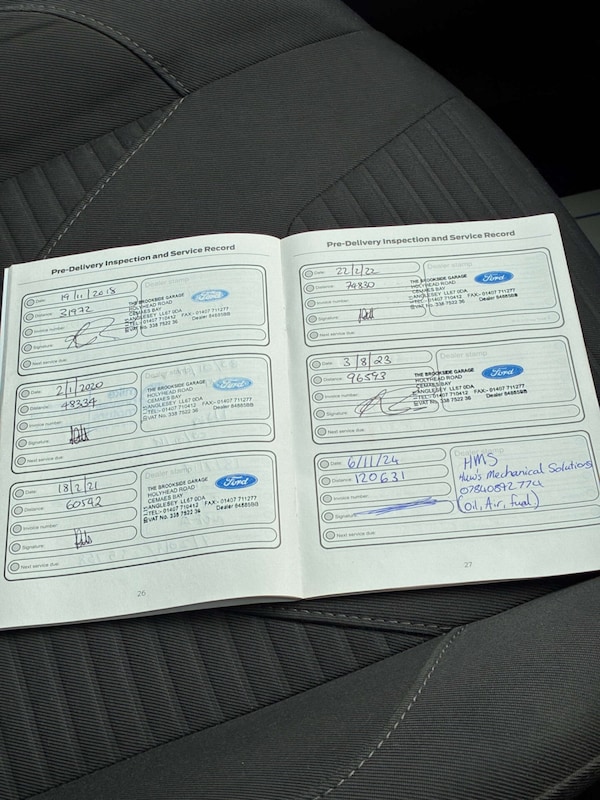 Pre-Delivery Inspection and Service Record
Date: 19/11/2018
Distance: 31972
Invoice number:
Signature:
Next service due:
Dealer stamp
THE BROOKSIDE GARAGE
HOLYHEAD ROAD
CEMAES BAY
ANGLESEY LL67 0DA
TEL:- 01407 710412 FAX:- 01407 711277
VAT No. 338 7522 36 Dealer 84585BB
Ford
Date: 2/1/2020
Distance: 48334
Invoice number:
Signature:
Next service due:
Dealer stamp
THE BROOKSIDE GARAGE
HOLYHEAD ROAD
CEMAES BAY
ANGLESEY LL67 0DA
TEL:- 01407 710412 FAX:- 01407 711277
VAT No. 338 7522 36 Dealer 84585BB
Ford
Date: 18/2/21
Distance: 60542
Invoice number:
Signature:
Next service due:
Dealer stamp
THE BROOKSIDE GARAGE
HOLYHEAD ROAD
CEMAES BAY
ANGLESEY LL67 0DA
TEL:- 01407 710412 FAX:- 01407 711277
VAT No. 338 7522 36 Dealer 84585BB
Ford
26
Pre-Delivery Inspection and Service Record
Date: 22/2/22
Distance: 74830
Invoice number:
Signature:
Next service due:
Dealer stamp
THE BROOKSIDE GARAGE
HOLYHEAD ROAD
CEMAES BAY
ANGLESEY LL67 0DA
TEL:- 01407 710412 FAX:- 01407 711277
VAT No. 338 7522 36 Dealer 84585BB
Ford
Date: 3/8/23
Distance: 96593
Invoice number:
Signature:
Next service due:
Dealer stamp
THE BROOKSIDE GARAGE
HOLYHEAD ROAD
CEMAES BAY
ANGLESEY LL67 0DA
TEL:- 01407 710412 FAX:- 01407 711277
VAT No. 338 7522 36 Dealer 84585BB
Ford
Date: 6/11/24
Distance: 120631
Invoice number:
Signature:
Next service due:
Dealer stamp
HMS
Huw's Mechanical Solutions
07840892774
(oil, Air, fuel)
27